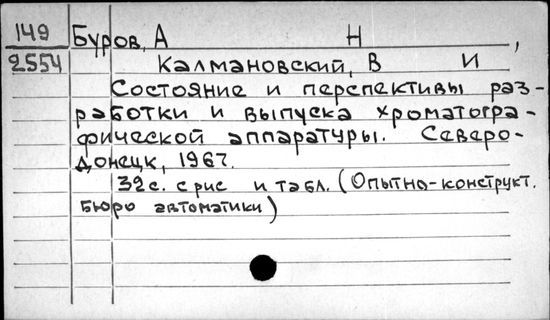 149 Буров, А Н ,
2554 Калмановский, В И
Состояние и перспективы раз-
работки и выпуска хроматогра-
фической аппаратуры. Северо-
донецк, 1967.
32с. с рис и табл. (Опытно-конструкт.
бюро автоматики)